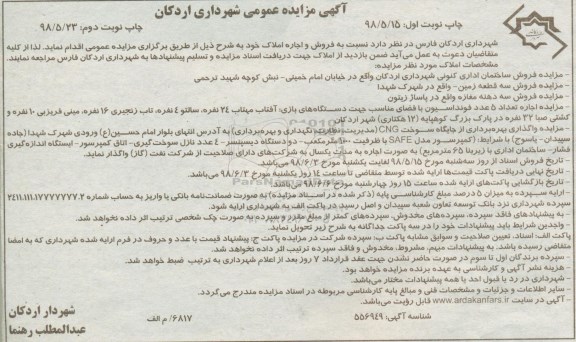 آگهی مزایده عمومی شهرداری اردکان
چاپ نوبت اول: ۹۸/۵/۱۵
چاپ نوبت دوم: ۹۸/۵/۲۳
شهرداری اردکان فارس در نظر دارد نسبت به فروش و اجاره املاک خود به شرح ذیل از طریق برگزاری مزایده عمومی اقدام نماید. لذا از کلیه
متقاضیان دعوت به عمل می‌آید ضمن بازدید از املاک جهت دریافت اسناد مزایده و تسلیم پیشنهادها به شهرداری اردکان فارس مراجعه نمایند.
مشخصات املاک مورد نظر مزایده:
- مزایده فروش ساختمان اداری کنونی شهرداری اردکان واقع در خیابان امام خمینی- نبش کوچه شهید ترحمی
- مزایده فروش سه قطعه زمین- واقع در شهرک شهدا
- مزایده فروش سه دهنه مغازه واقع در پاساژ زیتون
- مزایده اجاره تعداد ۵ عدد فونداسیون با فضای مناسب جهت دستگاه‌های بازی: آفتاب مهتاب ۲۴ نفره، سالتو ۴ نفره، تاب زنجیری ۱۶ نفره، مینی فریزبی ۱۰ نفره و
کشتی صبا ۳۲ نفره در پارک بزرگ کوهپایه (۱۲ هکتاری) شهر اردکان
- مزایده واگذاری بهره‌برداری از جایگاه سوخت CNG (مدیریت، نظارت، نگهداری و بهره‌برداری) به آدرس انتهای بلوار امام حسین(ع) ورودی شهرک شهدا (جاده
سپیدان - یاسوج) با شرایط: (کمپرسور مدل SAFE با ظرفیت مترمکعب - دو دستگاه دیسپنسر - ۴ عدد نازل سوخت‌گیری - اتاق کمپرسور - ایستگاه اندازه‌گیری
فشار- ساختمان اداری با زیربنا ۶۵ مترمربع) به صورت اجاره به مدت یکسال به شرکت‌های دارای صلاحیت از شرکت نفت (گاز) واگذار نماید.
- تاریخ فروش اسناد از روز سه‌شنبه مورخ ۹۸/۵/۱۵ لغایت یکشنبه مورخ ۹۸/۶/۳ می‌باشد.
- تاریخ نهایی دریافت پاکت قیمت‌ها ارایه شده توسط متقاضی تا ساعت ۱۴ روز یکشنبه مورخ ۹۸/۶/۳ می‌باشد.
- تاریخ بازگشایی پاکت‌های ارایه شده ساعت ۱۵ روز چهارشنبه مورخ ۹۸/۶/۶ می‌باشد.
- ارایه سپرده به میزان ۵ درصد مبلغ کارشناسی پایه (ذکر شده در اسناد مزایده) به صورت ضمانت‌نامه بانکی یا واریز به حساب شماره
سپرده شهرداری نزد بانک توسعه تعاون شعبه سپیدان و اصل رسید در پاکت الف به شهرداری ارایه شود.
- به پیشنهادهای فاقد سپرده، سپرده‌های مخدوش، سپرده‌های کمتر از مبلغ مقرر و سپرده به صورت چک شخصی ترتیب اثر داده نخواهد شد.
- واجدین شرایط باید پیشنهادات خود را در سه پاکت جداگانه به شرح زیر تحویل نماید.
پاکت الف: اسناد، تعیین صلاحیت و سوابق مشابه پاکت ب: سپرده شرکت در مزایده پاکت ج: پیشنهاد قیمت با عدد و حروف در فرم ارایه شده شهرداری که به امضا
متقاضی رسیده باشد. به پیشنهادات مبهم، مشروط، مخدوش و فاقد سپرده ترتیب اثر داده نخواهد شد.
- سپرده برندگان اول تا سوم در صورت حاضر نشدن جهت عقد قرارداد ۷ روز بعد از اعلام شهرداری به ترتیب ضبط خواهد شد.
- هزینه نشر آگهی و کارشناسی به عهده برنده مزایده خواهد بود.
- شهرداری در رد یا قبول احد یا همه پیشنهادات مختار می‌باشد.
- سایر اطلاعات و جزئیات و مشخصات فنی و مبالغ پایه کارشناسی مربوطه در اسناد مزایده مندرج می‌گردد.
- آگهی در سایت www.ardakanfars.ir قابل رویت می‌باشد.
شناسه آگهی: ۵۵۶۹۴۹
۶۸۱۷/م الف
شهردار اردکان
عبدالمطلب رهنما